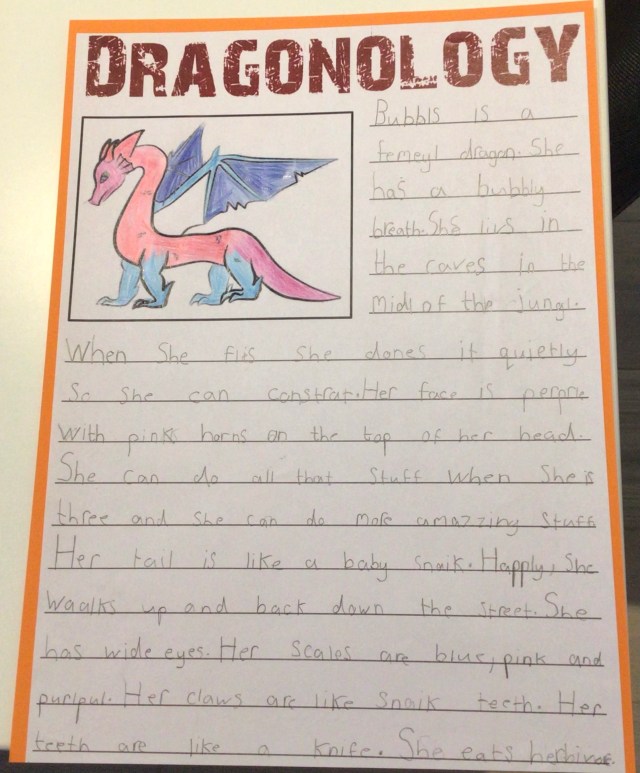 DRAGONOLOGY
Bubbls is a
femeyl dragon. She
has a bubbly
breath. She livs in
the caves in the
midl of the jungl.
When She flis She dones it quietly
So She can constrat. Her face is perpre
with pink horns on the top of her head.
She can do all that Stuff when She is
three and She can do more amazzing Stuff
Her tail is like a baby Snaik. Happly, She
waalks up and back down the Street. She
has wide eyes. Her Scales are blue, pink and
purlpul. Her claws are like Snaik teeth. Her
teeth are like a knife. She eats